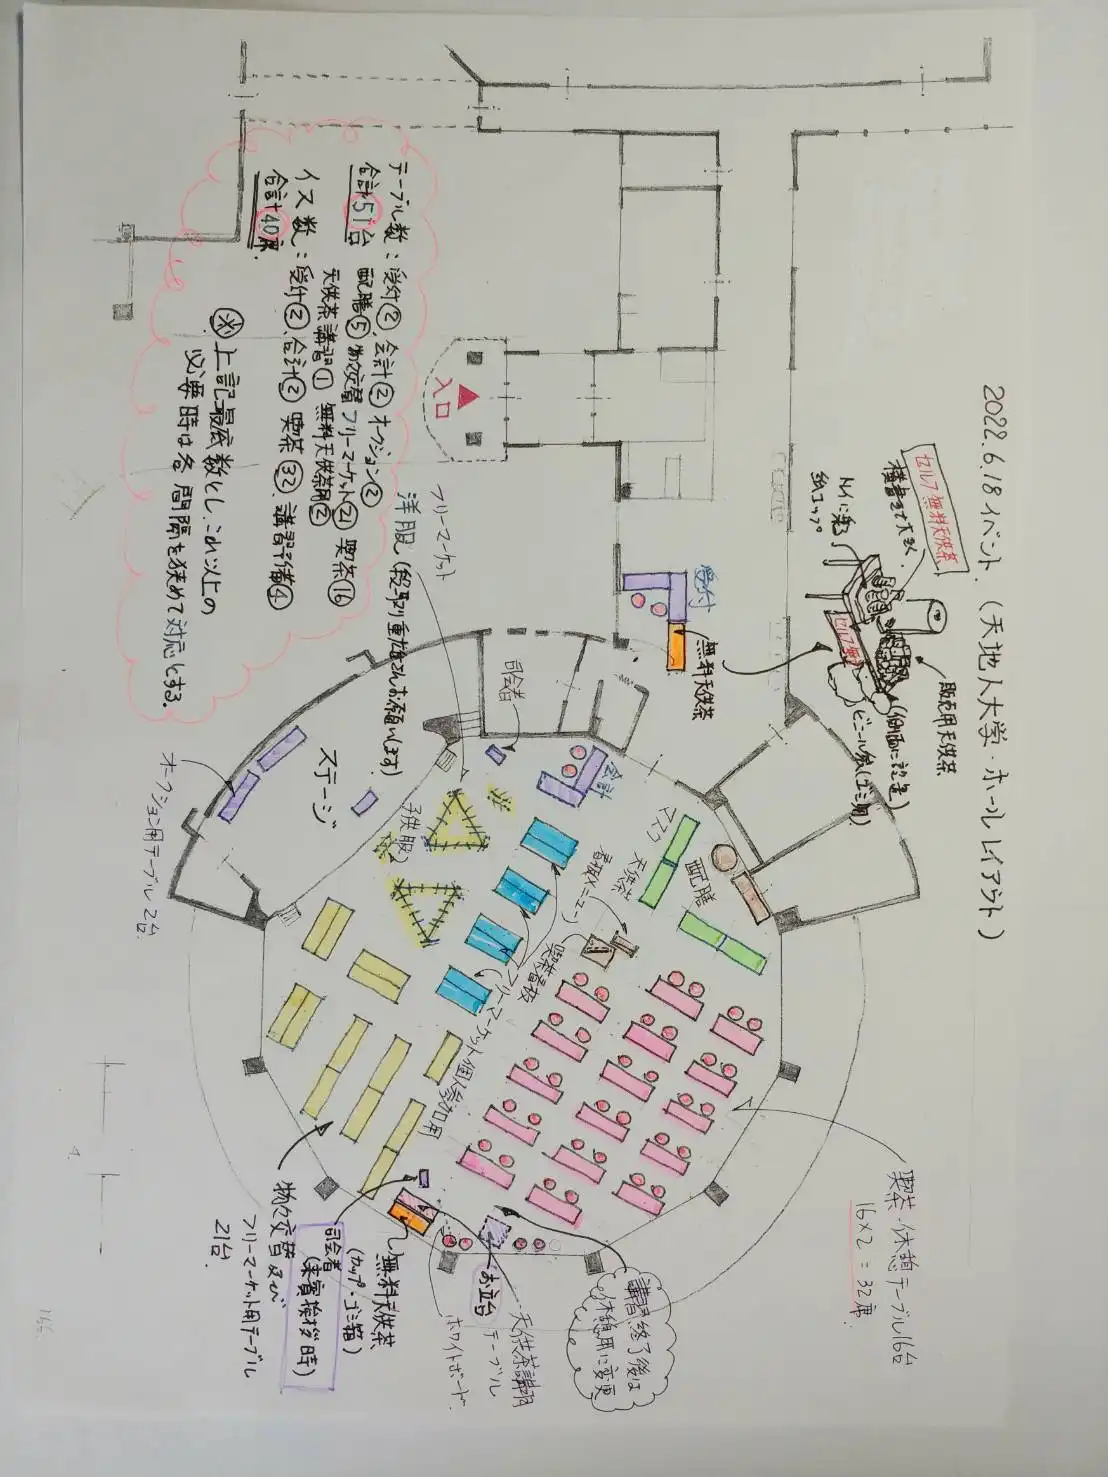 2022.6.18イベント (天地人大学・ホールレイアウト)
セルフ無料天供茶
横書きで大きく
トレイに乗る
紙コップ
販売用天供茶
(側面に設置)
ビニール袋(ゴミ用)
無料天供茶
受付
入口
テーブル数:受付② 会計② オークション②
合計51台 配膳⑤ 物々交替フリーマーケット㉑ 喫茶⑯
天供茶講習① 無料天供茶用②
イス数:受付② 会計② 喫茶㉜ 講習予備④
合計40席.
※上記最底数とし、これ以上の
必要時は各間隔を狭めて対応とする.
フリーマーケット
洋服(段取り重雄さんお願いします)
司会者
会計
ステージ
オークション用テーブル2台.
子供服
マスコ
天供茶
配膳
看板(メニュー)
喫茶看板
フリーマーケット個人参加用
喫茶・休憩テーブル16台
16×2=32席.
物々交替及び
フリーマーケット用テーブル
21台.
司会者
(来賓挨拶時)
無料天供茶
(カップ・ゴミ箱)
お立台
天供茶講習用
テーブル
ホワイトボード
講習終了後は
休憩用に変更